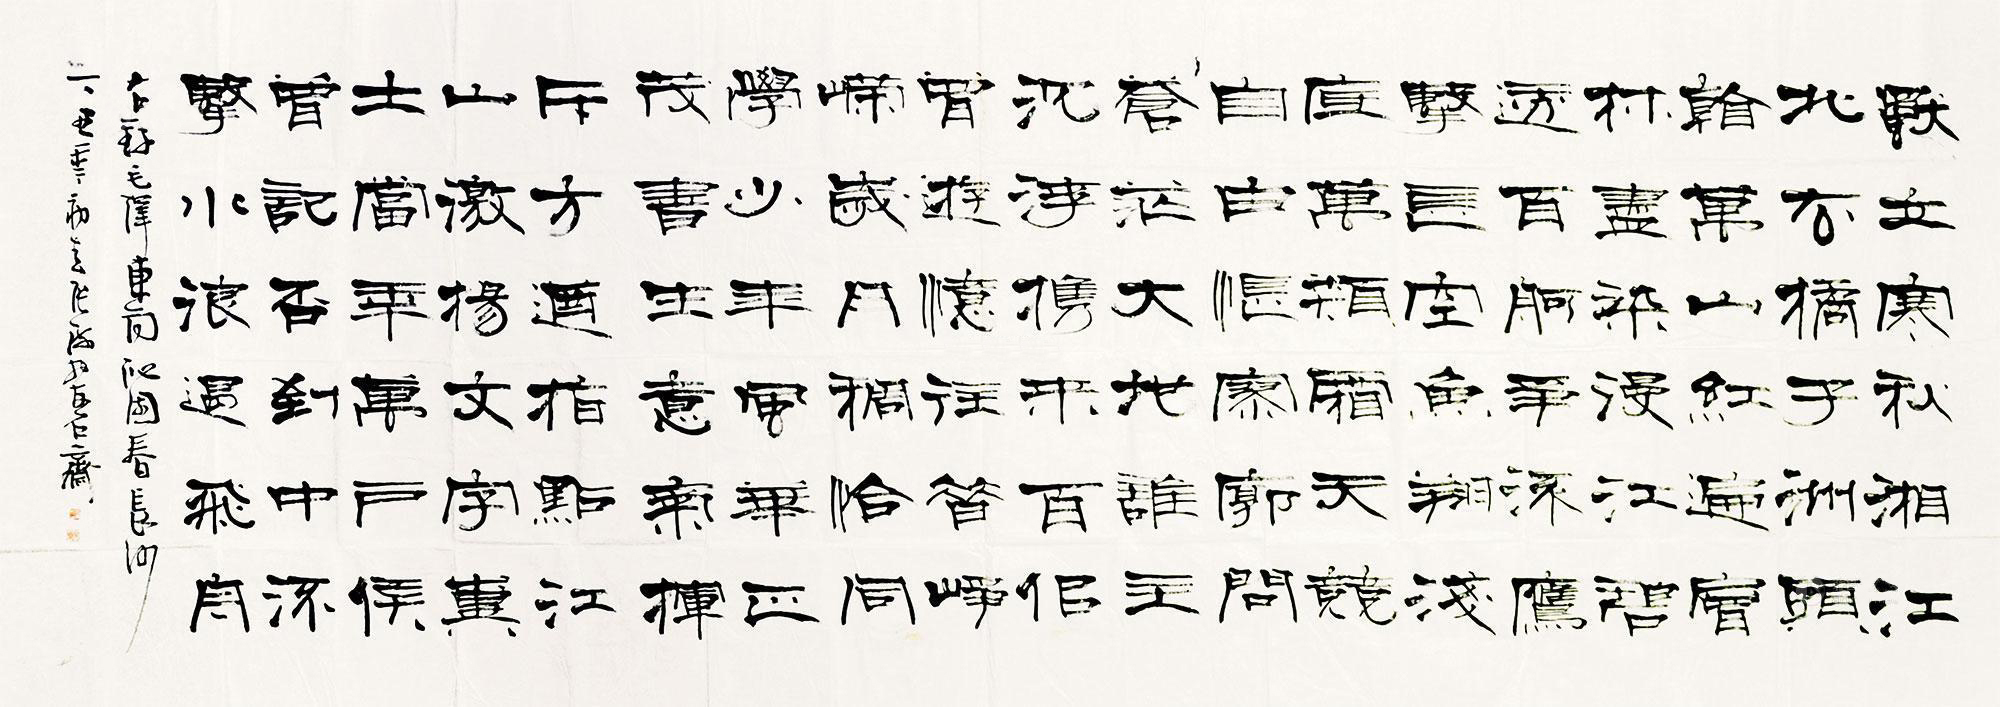 獨立寒秋湘江
北去橘子洲頭
看萬山紅遍層
林盡染漫江碧
透百舸爭流鷹
擊長空魚翔淺
底萬類霜天競
自由悵寥廓問
蒼茫大地誰主
沉浮携來百侣
曾遊憶往昔崢
嶸歲月稠恰同
學少年風華正
茂書生意氣揮
斥方遒指點江
山激揚文字糞
土當年萬戶侯
曾記否到中流
擊水浪遏飛舟
右録毛澤東詞沁園春長沙